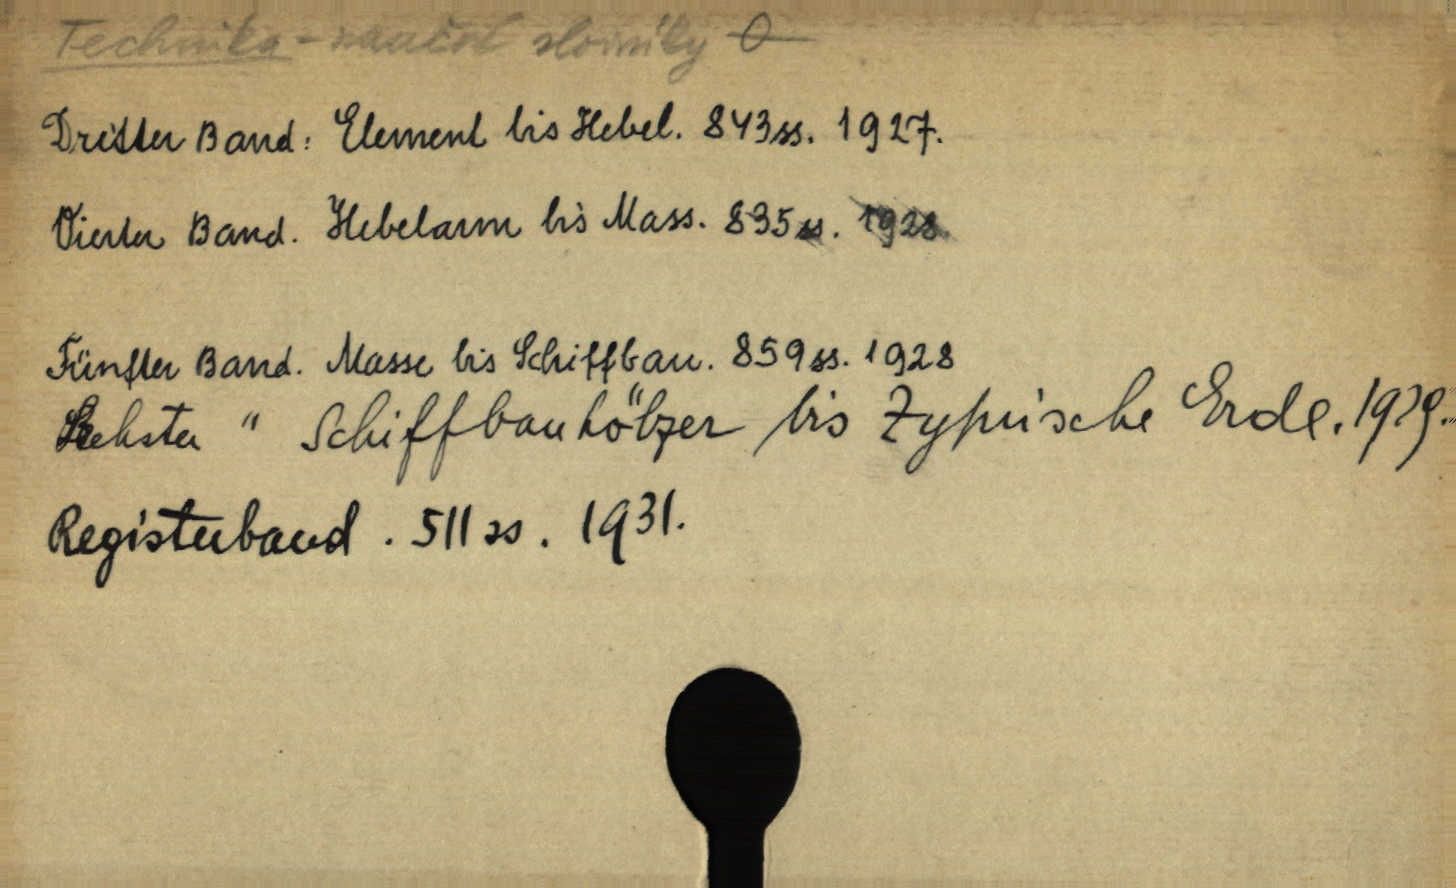 Technika - naučné slovníky O
Dritter Band: Element bis Hebel. 843ss. 1927.
Vierter Band. Hebelarm bis Mass. 835ss. 1928.
Fünfter Band. Masse bis Schiffbau. 859ss. 1928
Sechster " Schiffbauhölzer bis Zyprische Erde. 1929.
Registerband. 511ss. 1931.